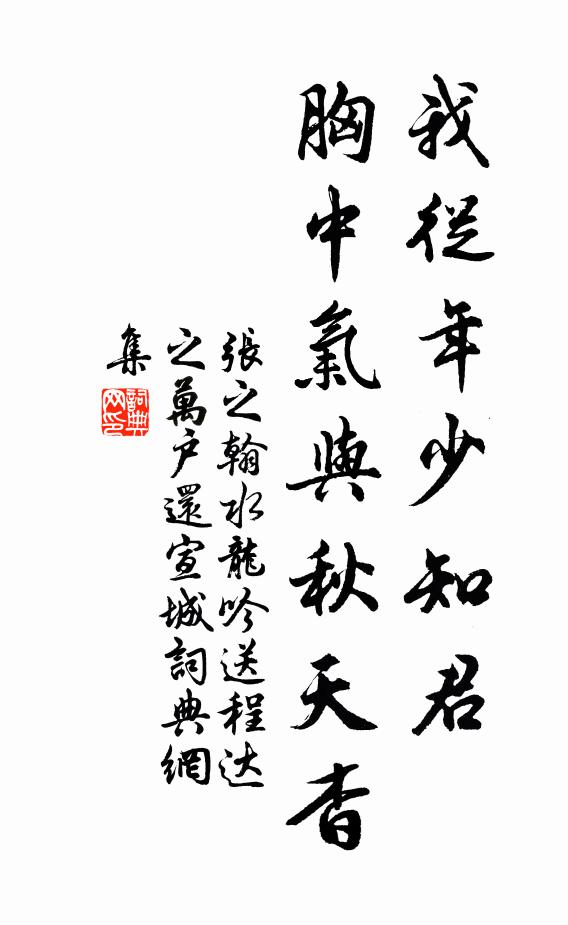 我從年少知君
胸中氣與秋天杳
張之翰水龍吟送程达
之萬户還宣城詞典網
集
詞典
网印